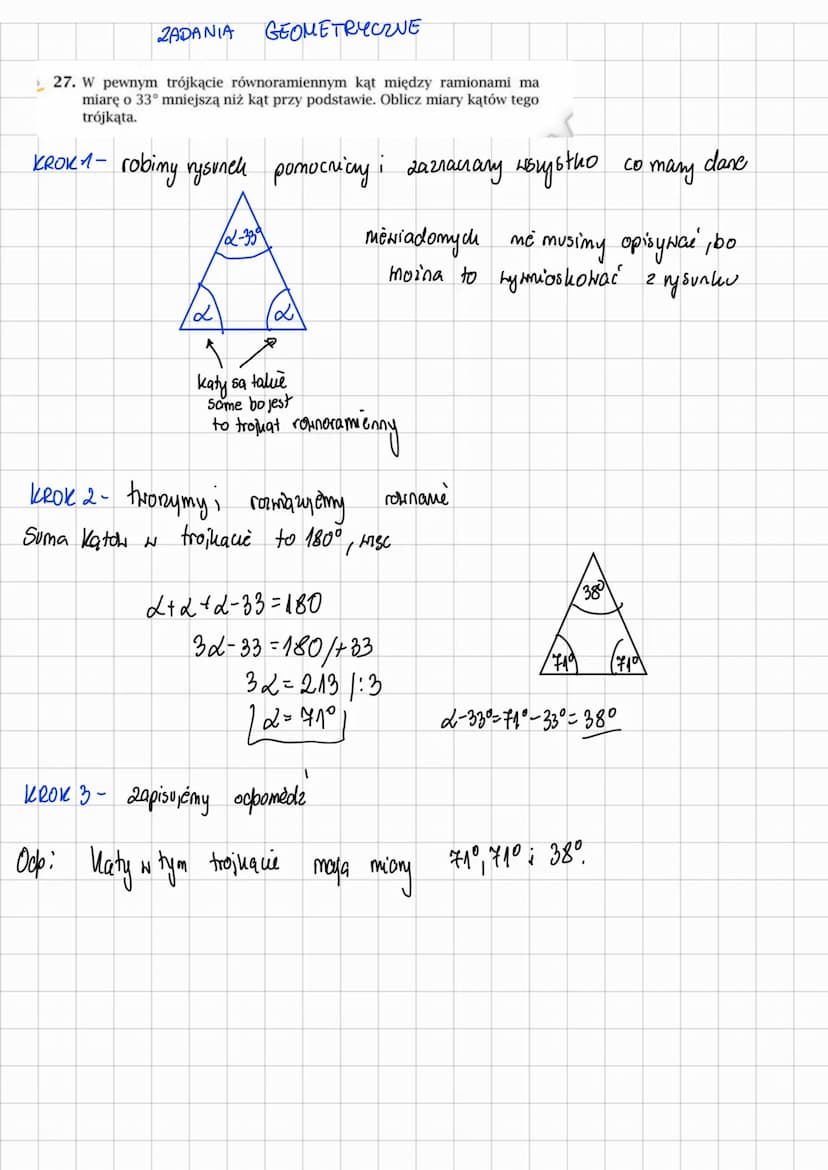 ZADANIA GEOMETRYCZNE
27. W pewnym trójkącie równoramiennym kąt między ramionami ma
miarę o 33° mniejszą niż kąt przy podstawie. Oblicz miary kątów tego
trójkąta.
KROK 1- robimy rysunek pomocniczy i zaznaczamy wszystko co mamy dane
α-33°
niewiadomych nie musimy opisywać, bo
można to wywnioskować z rysunku
α α
kąty są takie
same bo jest
to trójkąt równoramienny
KROK 2- tworzymy i rozwiązujemy równanie
Suma kątów w trójkącie to 180°, więc
α+α+α-33=180
3α-33=180/+33
3α=213 /:3
α=71°
38°
71° 71°
α-33°=71°-33°=38°
KROK 3- zapisujemy odpowiedź
Odp: Kąty w tym trójkącie mają miary 71°, 71° i 38°.